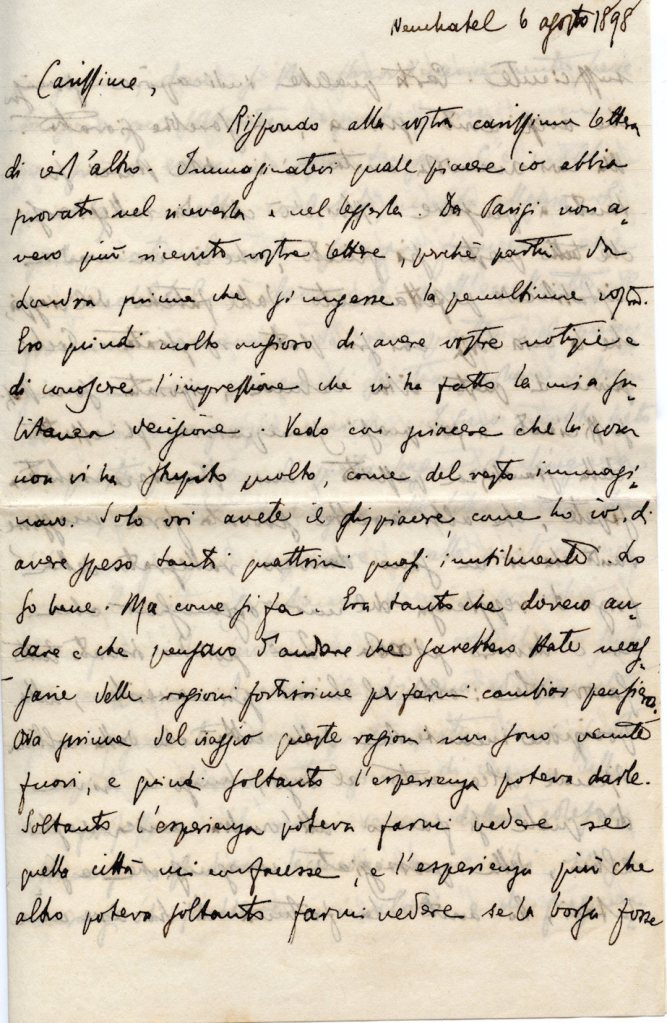 Neuchatel 6 agosto 1898
Carissime,
Rispondo alla vostra carissima lettera
di ierl'altro. Immaginatevi quale piacere io abbia
provato nel riceverla e nel leggerla. Da Parigi non a-
vevo più ricevuto vostre lettere, perchè partii da
Londra prima che giungesse la penultima vostra.
Ero quindi molto ansioso di avere vostre notizie e
di conoscere l'impressione che vi ha fatto la mia su-
bitanea decisione. Vedo con piacere che la cosa
non vi ha stupito molto, come del resto immagi-
navo. Solo voi avete il dispiacere, come ho io, di
avere speso tanti quattrini quasi inutilmente. Lo
so bene. Ma come si fa. Era tanto che dovevo an-
dare e che pensavo d'andare che sarebbero state neces-
sarie delle ragioni fortissime per farmi cambiar pensiero.
Ora prima del viaggio queste ragioni non sono venute
fuori, e quindi soltanto l'esperienza poteva darle.
Soltanto l'esperienza poteva farmi vedere se
quella città mi confacesse, e l'esperienza più che
altro poteva soltanto farmi vedere se la borsa fosse